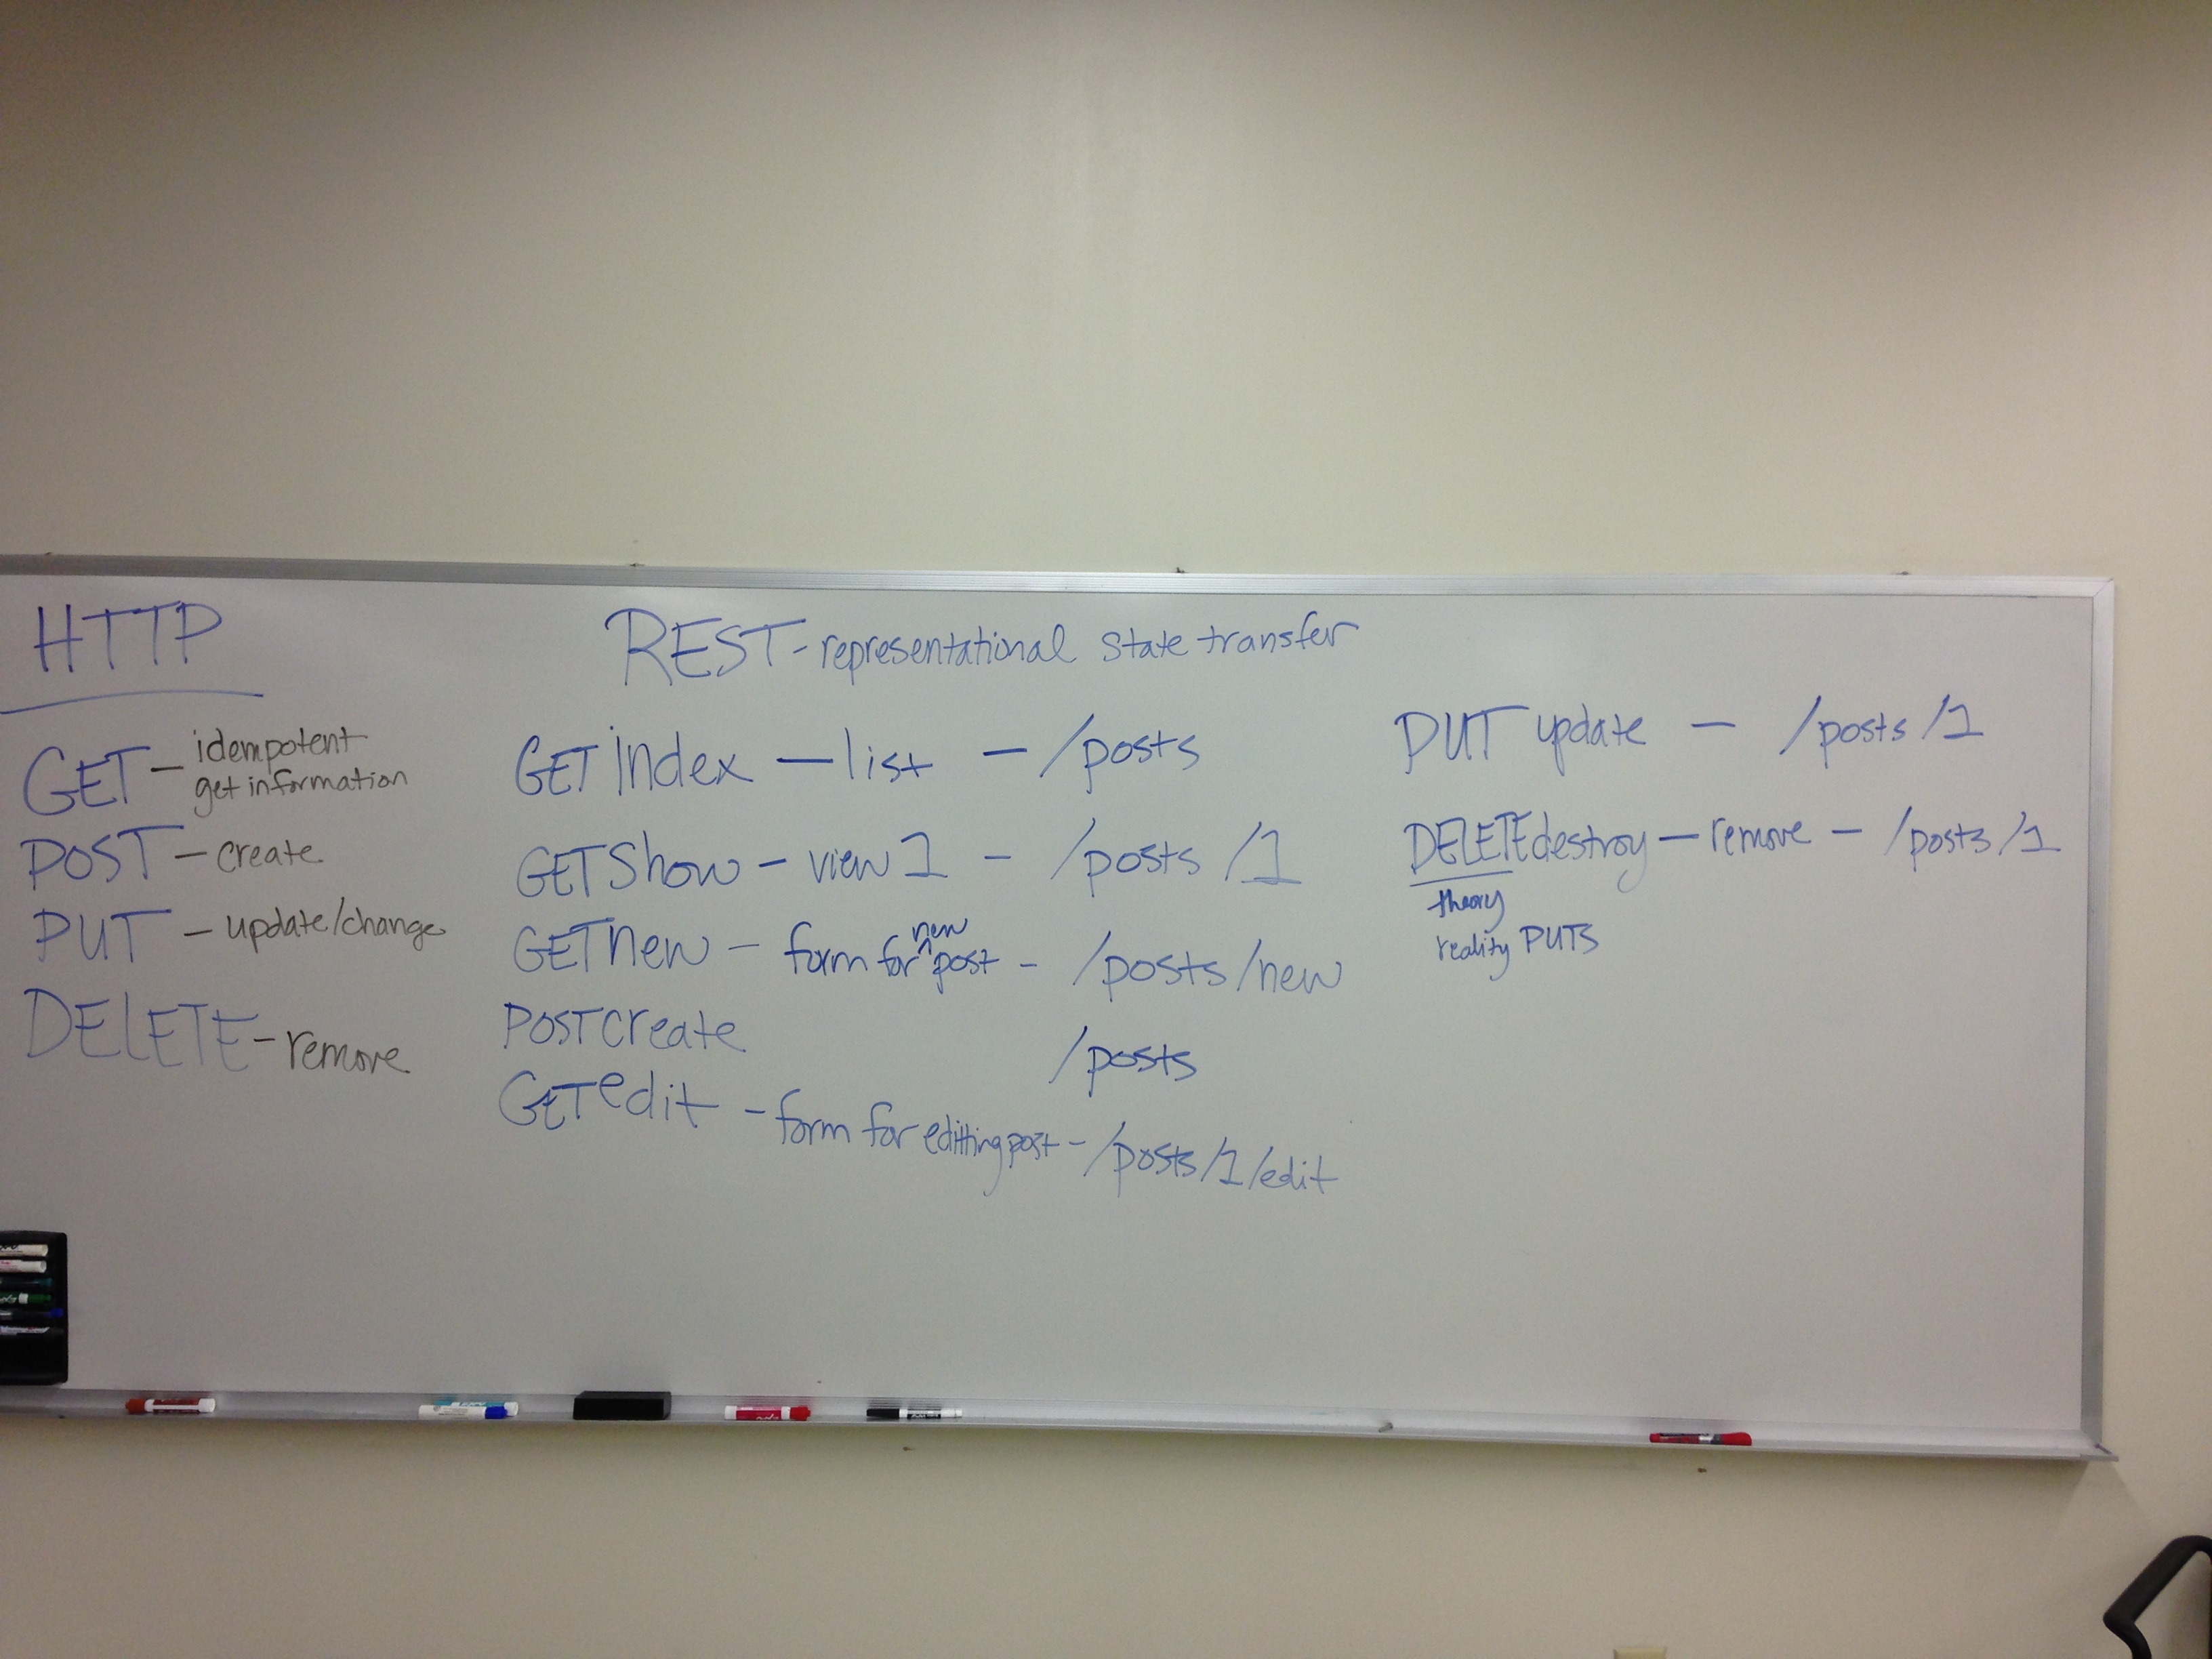 HTTP
GET - idempotent
get information
POST - create
PUT - update/change
DELETE - remove
REST - representational state transfer
GET index - list - /posts
GET Show - view 1 - /posts /1
GET new - form for new post - /posts/new
POST create /posts
GET edit - form for editting post - /posts/1/edit
PUT update - /posts/1
DELETE destroy - remove - /posts/1
theory
reality PUTS